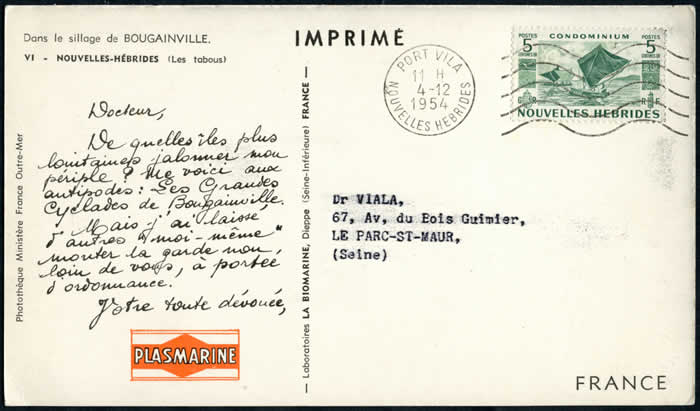 Dans le sillage de BOUGAINVILLE.
VI - NOUVELLES-HÉBRIDES (Les tabous)
Docteur,
De quelles îles plus
lointaines jalonner mon
périple ? Me voici aux
antipodes : Les Grandes
Cyclades de Bougainville.
Mais j'ai laissé
d'autres "moi-même"
monter la garde non
loin de vous, à portée
d'ordonnance.
Votre toute dévouée,
PLASMARINE
Photothèque Ministère France Outre-Mer
— Laboratoires LA BIOMARINE, Dieppe (Seine-Inférieure) FRANCE —
IMPRIMÉ
PORT VILA
11 H
4-12
1954
NOUVELLES HEBRIDES
POSTES
5
CENTIMES
CONDOMINIUM
POSTES
5
CENTIMES
G R
R F
NOUVELLES HEBRIDES
Dr VIALA,
67, Av. du Bois Guimier,
LE PARC-ST-MAUR,
(Seine)
FRANCE